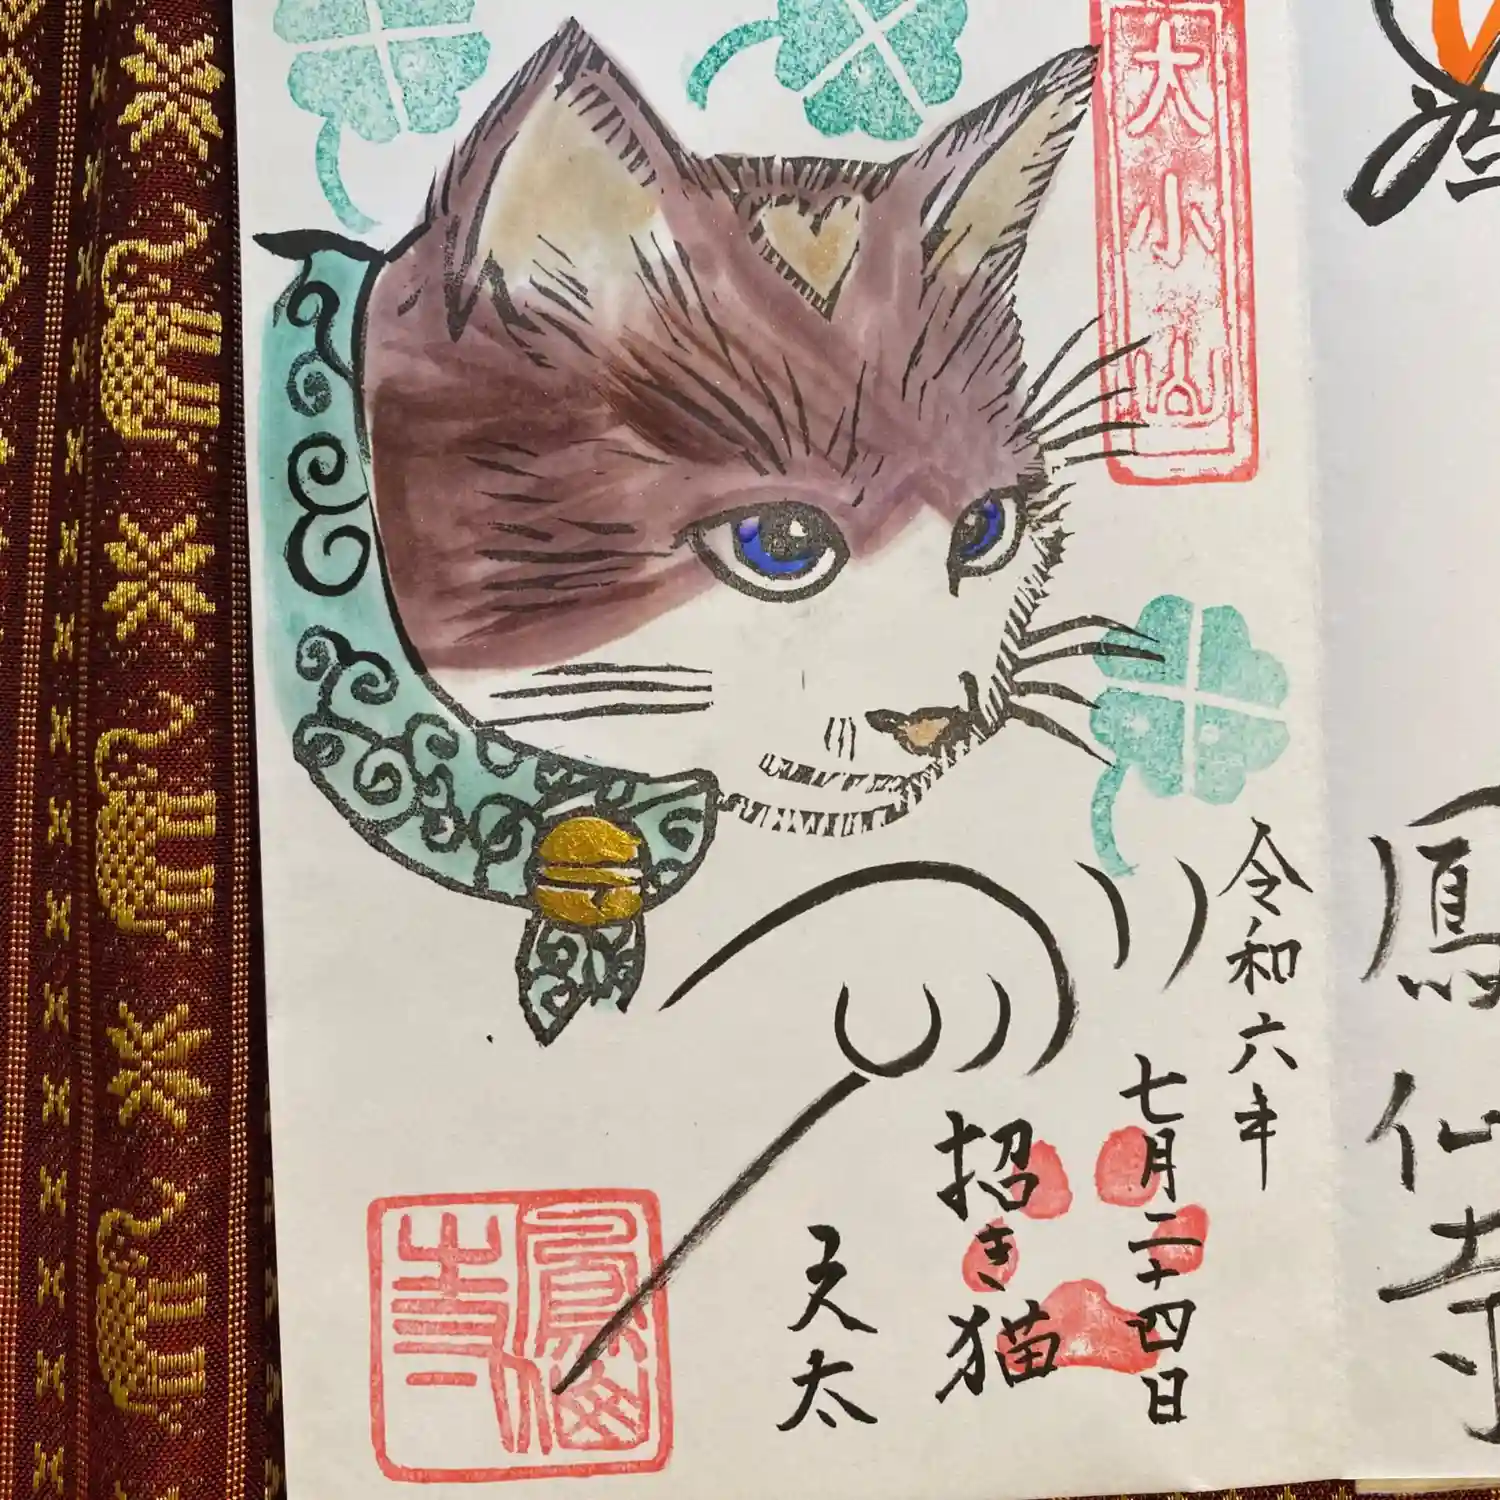 大小山
令和六年
七月二十四日
招き猫
天太
鳳仙寺
鳳仙寺